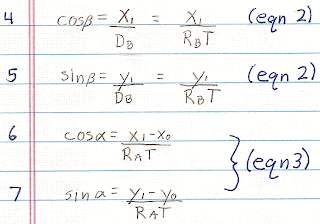 4 cosβ = X₁/D_B = X₁/R_BT (eqn 2)
5 sinβ = y₁/D_B = y₁/R_BT (eqn 2)
6 cosα = x₁-x₀/R_AT
} (eqn3)
7 sinα = y₁-y₀/R_AT